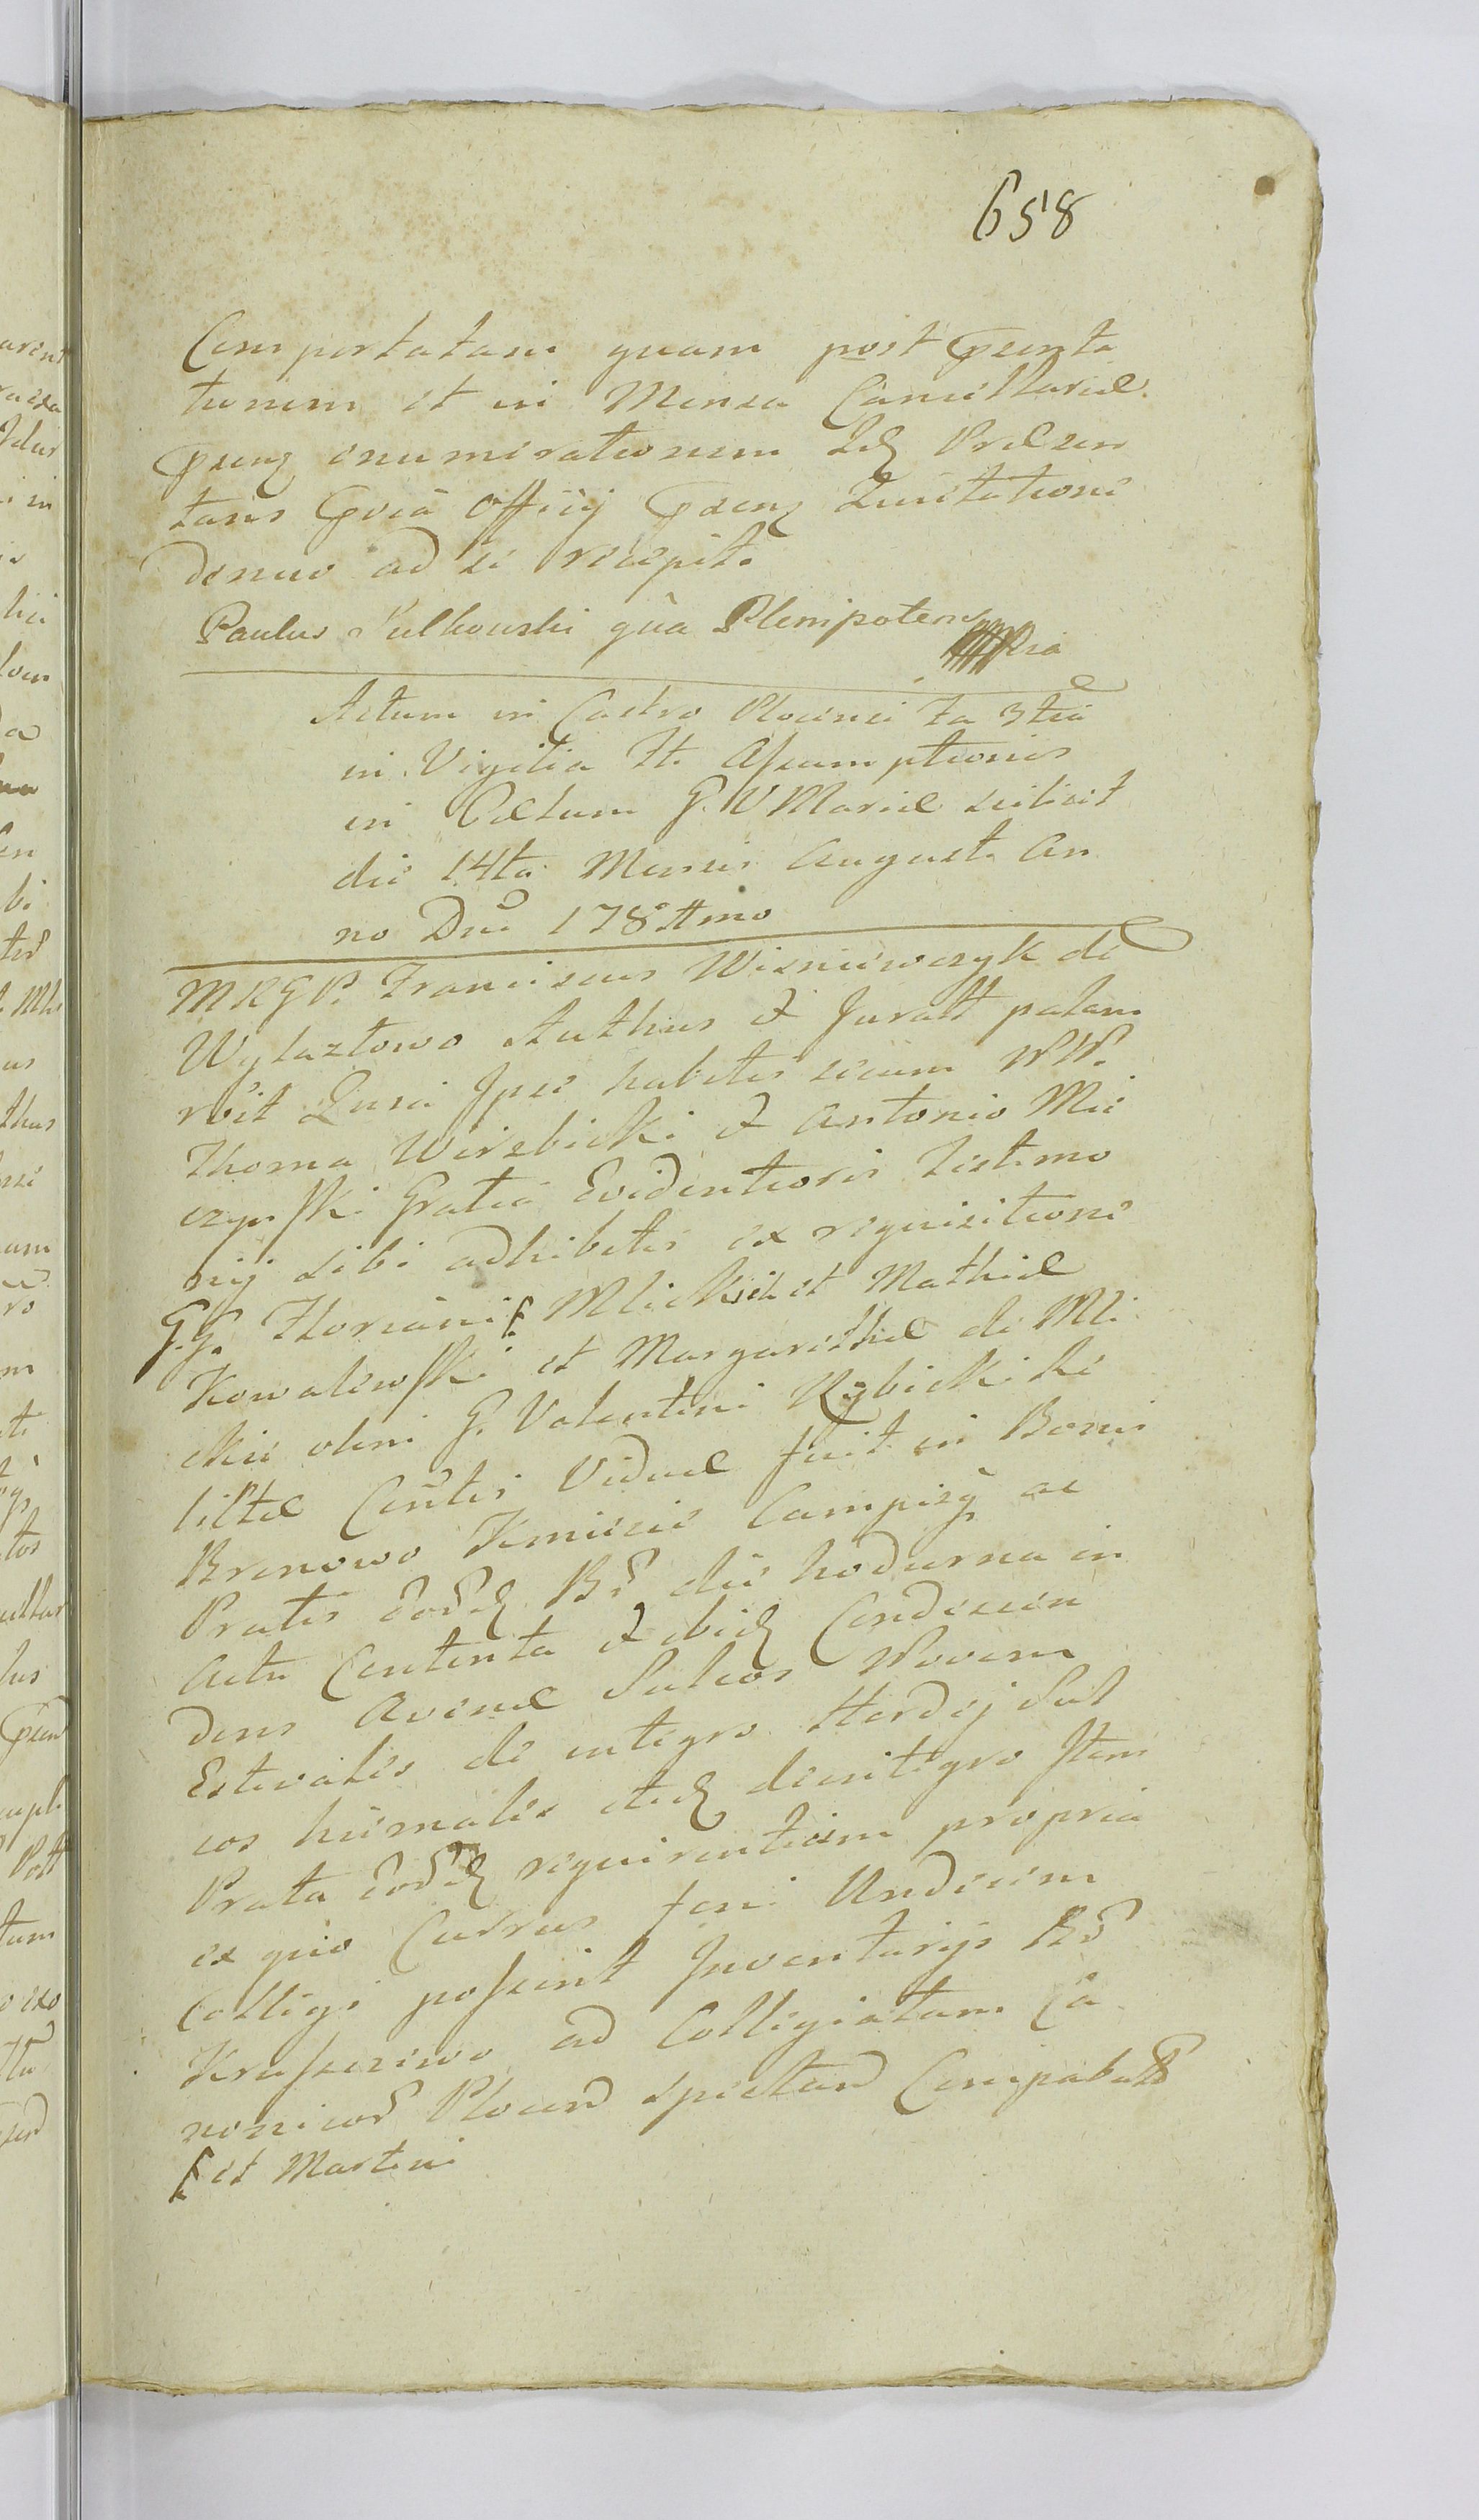 658
Comportatam quam post pzenta
tionem et in Mensa Cancellariæ
pzenq enumerationem Idq Præsen
tans pviâ Officij pzenq Quietatione
denuo ad se recepit.
Paulus Sulkowski qûa Plenipotens
mppria
Actum in Castro Plocensi Fa 3tia
in Vigilia Ft. Assumptionis
in Cælum B. V Mariæ scilicet
die 14ta Mensis Augusti An
no Dni 178
MRGP. Franciscus Wisniewczyk de
Wylazlowo Authus et Juratt palam
rêit Quia Ipse habitis secum NN.
Thoma Wierzbicki et Antonio Mie
czynski Gratiâ Evidentioris Testimo
nij sibi adhibitis ex requisitione
GG. Floriani Mlicki et Mathiæ
Kowalewski et Margarethæ de Mli
ckie olim G. Valentini Rybicki Re
lictæ Cõntis Viduæ fuit in Bonis
Bronowo Kmiecie Campisq ac
Pratis eordq Br die hodierna in
Actu Contenta et ibidq Condescen
dens Avenæ Sulcos Novem
Estivales de integro Hordej Sul
cos hiemales itidq deintegro Item
Prata eordq requirentium propria
ex quo Currus feni Undecim
Colligi possent Inventarijs Br
Kraszewo ad Collegiatam Ca
nonicor Plocen spectand Compabatt
et Martini